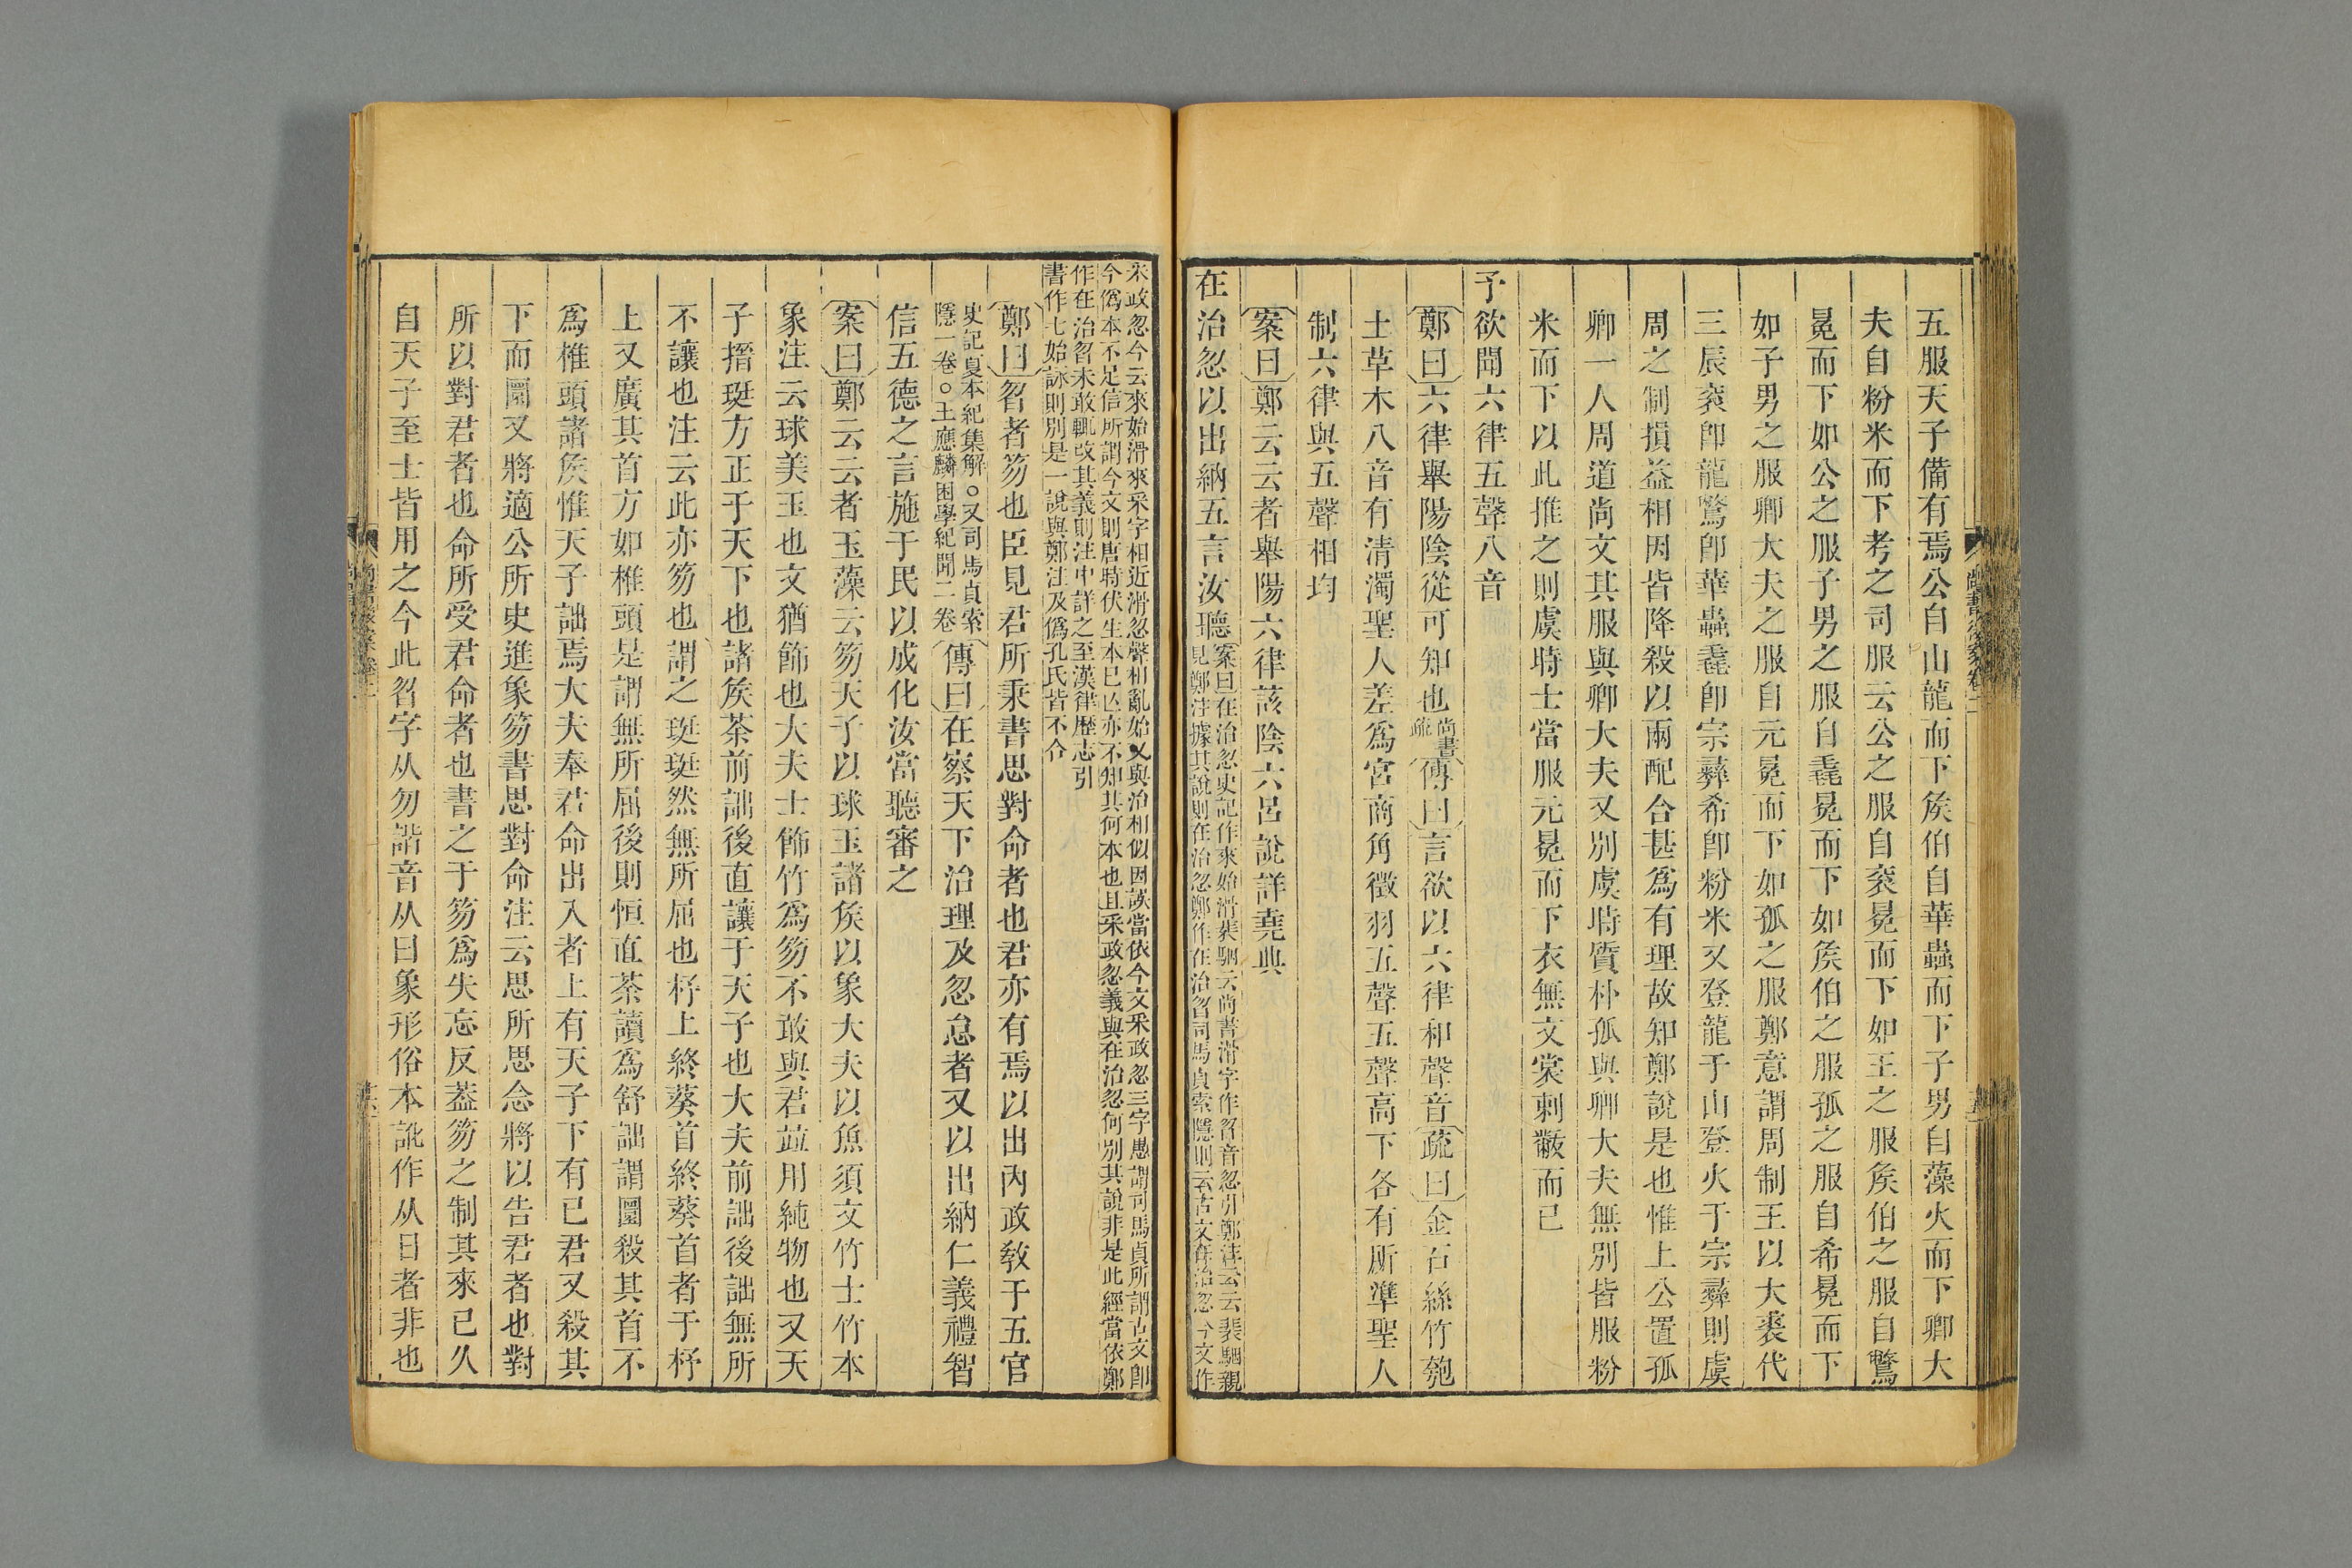 五服天子備有焉公自山龍而下矦伯自華蟲而下子男自藻火而下卿大
夫自粉米而下考之司服云公之服自衮冕而下如王之服矦伯之服自鷩
冕而下如公之服子男之服自毳冕而下如矦伯之服孤之服自希冕而下
如子男之服卿大夫之服自元冕而下如孤之服鄭意謂周制王以大裘代
三辰衮卽龍鷩卽華蟲毳卽宗彝希卽粉米又登龍于山登火于宗彝則虞
周之制損益相因皆降殺以兩配合甚爲有理故知鄭說是也惟上公置孤
卿一人周道尚文其服與卿大夫又別虞時質朴孤與卿大夫無別皆服粉
米而下以此推之則虞時士當服元冕而下衣無文裳刺黻而已
予欲聞六律五聲八音
鄭曰六律舉陽陰從可知也尚書疏傳曰言欲以六律和聲音疏曰金石絲竹匏
土草木八音有清濁聖人差爲宮商角徵羽五聲五聲高下各有所準聖人
制六律與五聲相均
案曰鄭云云者舉陽六律該陰六呂說詳堯典
在治忽以出納五言汝聽案曰在治忽史記作來始滑裴駰云尚書滑字作曶音忽引鄭注云云裴駰親
見鄭注據其說則在治忽鄭作在治曶司馬貞索隱則云古文在治忽今文作
采政忽今云來始滑來采字相近滑忽聲相亂始又與治相似因誤當依今文采政忽三字愚謂司馬貞所謂古文卽
今僞本不足信所謂今文則唐時伏生本已亡亦不知其何本也且采政忽義與在治忽何別其說非是此經當依鄭
作在治曶未敢輒改其義則注中詳之至漢律歷志引
書作七始詠則別是一說與鄭注及僞孔氏皆不合
鄭曰曶者笏也臣見君所秉書思對命者也君亦有焉以出內政敎于五官
史記夏本紀集解○又司馬貞索
隱一卷○王應麟困學紀聞二卷傳曰在察天下治理及忽怠者又以出納仁義禮智
信五德之言施于民以成化汝當聽審之
案曰鄭云云者玉藻云笏天子以球玉諸矦以象大夫以魚須文竹士竹本
象注云球美玉也文猶飾也大夫士飾竹爲笏不敢與君並用純物也又天
子搢珽方正于天下也諸矦荼前詘後直讓于天子也大夫前詘後詘無所
不讓也注云此亦笏也謂之珽珽然無所屈也杼上終葵首終葵首者于杼
上又廣其首方如椎頭是謂無所屈後則恒直荼讀爲舒詘謂圜殺其首不
爲椎頭諸矦惟天子詘焉大夫奉君命出入者上有天子下有已君又殺其
下而圜又將適公所史進象笏書思對命注云思所思念將以告君者也對
所以對君者也命所受君命者也書之于笏爲失忘反葢笏之制其來已久
自天子至士皆用之今此曶字从勿諧音从曰象形俗本訛作从日者非也